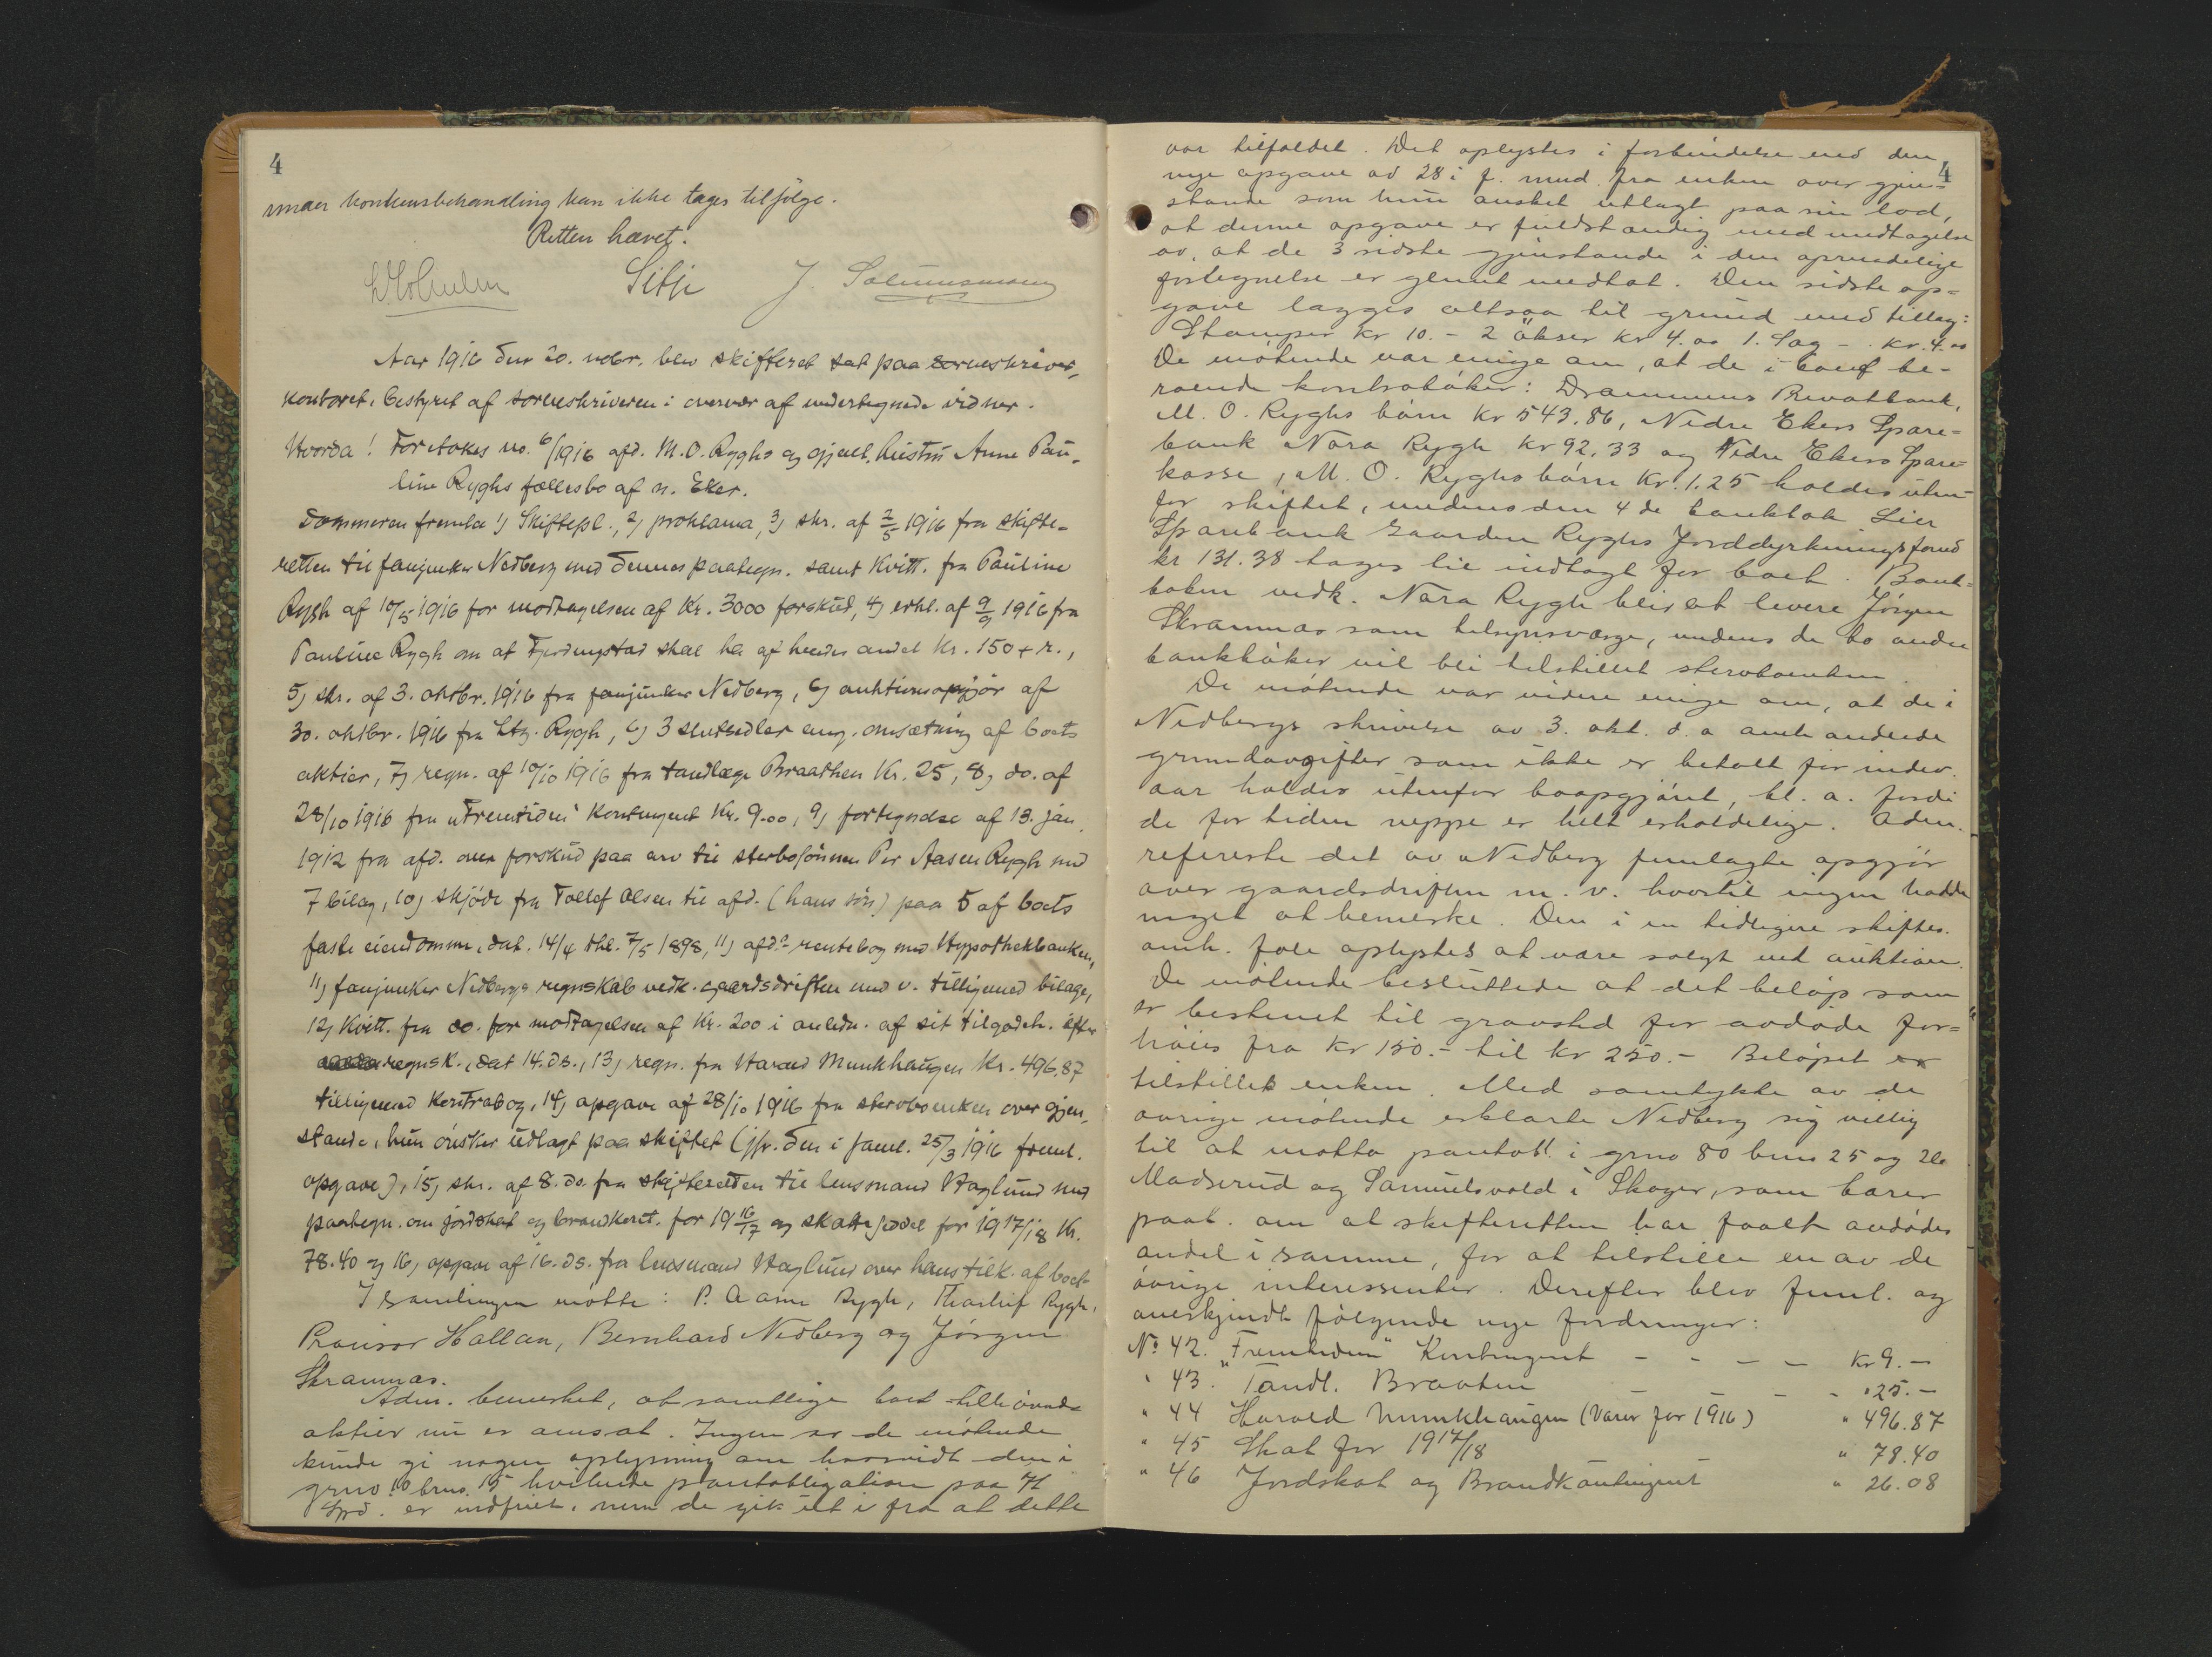 4
under konkursbehandling kan ikke tages tilfølge.
Retten hævet.
J. Salumsmoen
Aar 1916 den 20. nobr. blev skifteret sat paa sorenskriver-
kontoret, bestyret af sorenskriveren i overvær af undertegnede vidner.
Hvorda! Foretokes no. 6/1916 afd. M. O. Ryghs og gjenl. hustru Anne Pau-
line Ryghs fællesbo af n. Eker.
Dommeren fremla 1) Skiftepl., 2) proklama, 3) skr. af 2/5 1916 fra skifte-
retten til fanjunker Nedberg med dennes paategn. samt Kvitt. fra Pauline
Rygh af 10/5 1916 for modtagelsen af Kr. 3000 forskud, 4) erkl. af 9/9 1916 fra
Pauline Rygh om at Fjerdingstad skal ha af hendes andel Kr. 150 + r.,
5) skr. af 3. oktbr. 1916 fra fanjunker Nedberg, 6) auktionsopgjør af
30. oktbr. 1916 fra Rygh, 6) 3 slutsedler ang. omsætning af boets
aktier, 7) regn. af 10/10 1916 fra tandlæge Braathen Kr. 25, 8) do. af
28/10 1916 fra "Fremtiden" Kontingent Kr. 9.00, 9) fortegnelse af 13. jan.
1912 fra afd. over forskud paa arv til sterbosønnen Per Aasen Rygh med
7 bilag, 10) skjøde fra Tollef Olsen til afd. (hans søn) paa 5 af boets
faste eiendomme, dat. 14/4 thl. 7/5 1898, 11) afd.s rentebog med Hypothekbanken,
11) fanjunker Nedbergs regnskab vedk. gaardsdriften med v. tilligemed bilage,
12) Kvitt. fra do. for modtagelsen af Kr. 200 i anledn. af sit tilgodeh. efter
regnsk., dat 14. ds., 13) regn. fra Harald Munkhaugen Kr. 496.87
tilligemed Kontrabog, 14) opgave af 28/10 1916 fra stervboenken over gjen-
stande, hun ønsker udlagt paa skiftet (jfr. den i saml. 25/3 1916 freml.
opgave), 15) skr. af 8. do. fra skifteretten til lensmand Haglund med
paategn. om jordskat og brandkont. for 1916/17 og skatteseddel for 1917/18 Kr.
78.40 og 16) opgave af 16. ds. fra lensmand Haglund over hans tilk. af boet.
I samlingen møtte: P. Aasen Rygh, Thorleif Rygh,
Provisor Hallan, Bernhard Nedberg og Jørgen
Skramnæs.
Adm. bemerket, at samtlige boet tilhørende
aktier nu er omsat. Ingen av de møtende
kunde gi nogen oplysning om hvorvidt den i
grno 10 brno. 15 hvilende pantobligation paa 71
Spd. er indfriet, men de gik ut i fra at dette
4
var tilfældet. Det oplystes i forbindelse med den
nye opgave av 28 i f. mnd. fra enken over gjen-
stande som hun ønsket utlagt paa sin lod,
at denne opgave er fuldstændig med undtagelse
av, at de 3 sidste gjenstande i den oprindelige
fortegnelse er glemt medtat. Den sidste op-
gave lægges altsaa til grund med tillæg:
Stamper kr 10.- 2 økser Kr 4.00 1. Sag - kr. 4.00
De møtende var enige om, at de i boet be-
roende kontrabøker: Drammens Privatbank,
M. O. Ryghs børn Kr 543.86, Nedre Ekers Spare-
bank Nora Rygh Kr 92.33 og Nedre Ekers Spare-
kasse, M. O. Ryghs børn Kr. 1.25 holdes uten-
for skiftet, medens den 4 de bankbok Lier
Sparebank Gaarden Ryghs Jorddyrkningsfond
kr 131.38 tages til indtægt for boet. Bank-
boken vedk. Nora Rygh blir at levere Jørgen
Skramnæs som tilsynsværge, medens de to andre
bankbøker vil bli tilstillet stervboenken.
De møtende var videre enige om, at de i
Nedbergs skrivelse av 3. okt. d. a omhandlede
grundavgifter som ikke er betalt for indev.
aar holdes utenfor boopgjøret, bl. a. fordi
de for tiden neppe er helt erholdelige. Adm.
refererte det av Nedberg fremlagte opgjør
over gaardsdriften m. v. hvortil ingen hadde
noget at bemerke. Den i en tidligere skiftes.
omh. fole oplystes at være solgt ved auktion.
De møtende besluttede at det beløp som
er bestemt til gravsted for avdøde for-
høies fra Kr 150.- til kr 250.- Beløpet
tilstilles enken. Med samtykke av de
øvrige møtende erklærte Nedberg sig villig
til at motta pantobl. i grno 80 brno 25 og 26
Madserud og Samuelsvold i Skoger, som bærer
paat. om at skifteretten har solgt avdødes
andel i samme, for at tilstille en av de
øvrige interessenter. Derefter blev freml. og
anerkjendt følgende nye fordringer:
No 42. "Fremtiden" Kontingent - - - - kr 9.-
" 43. Tandl. Braaten - - - - " 25.-
" 44 Harold Munkhaugen (Varer for 1916) " 496.87
" 45 Skat for 1917/18 " 78.40
" 46 Jordskat og Brandkontingent " 26.08